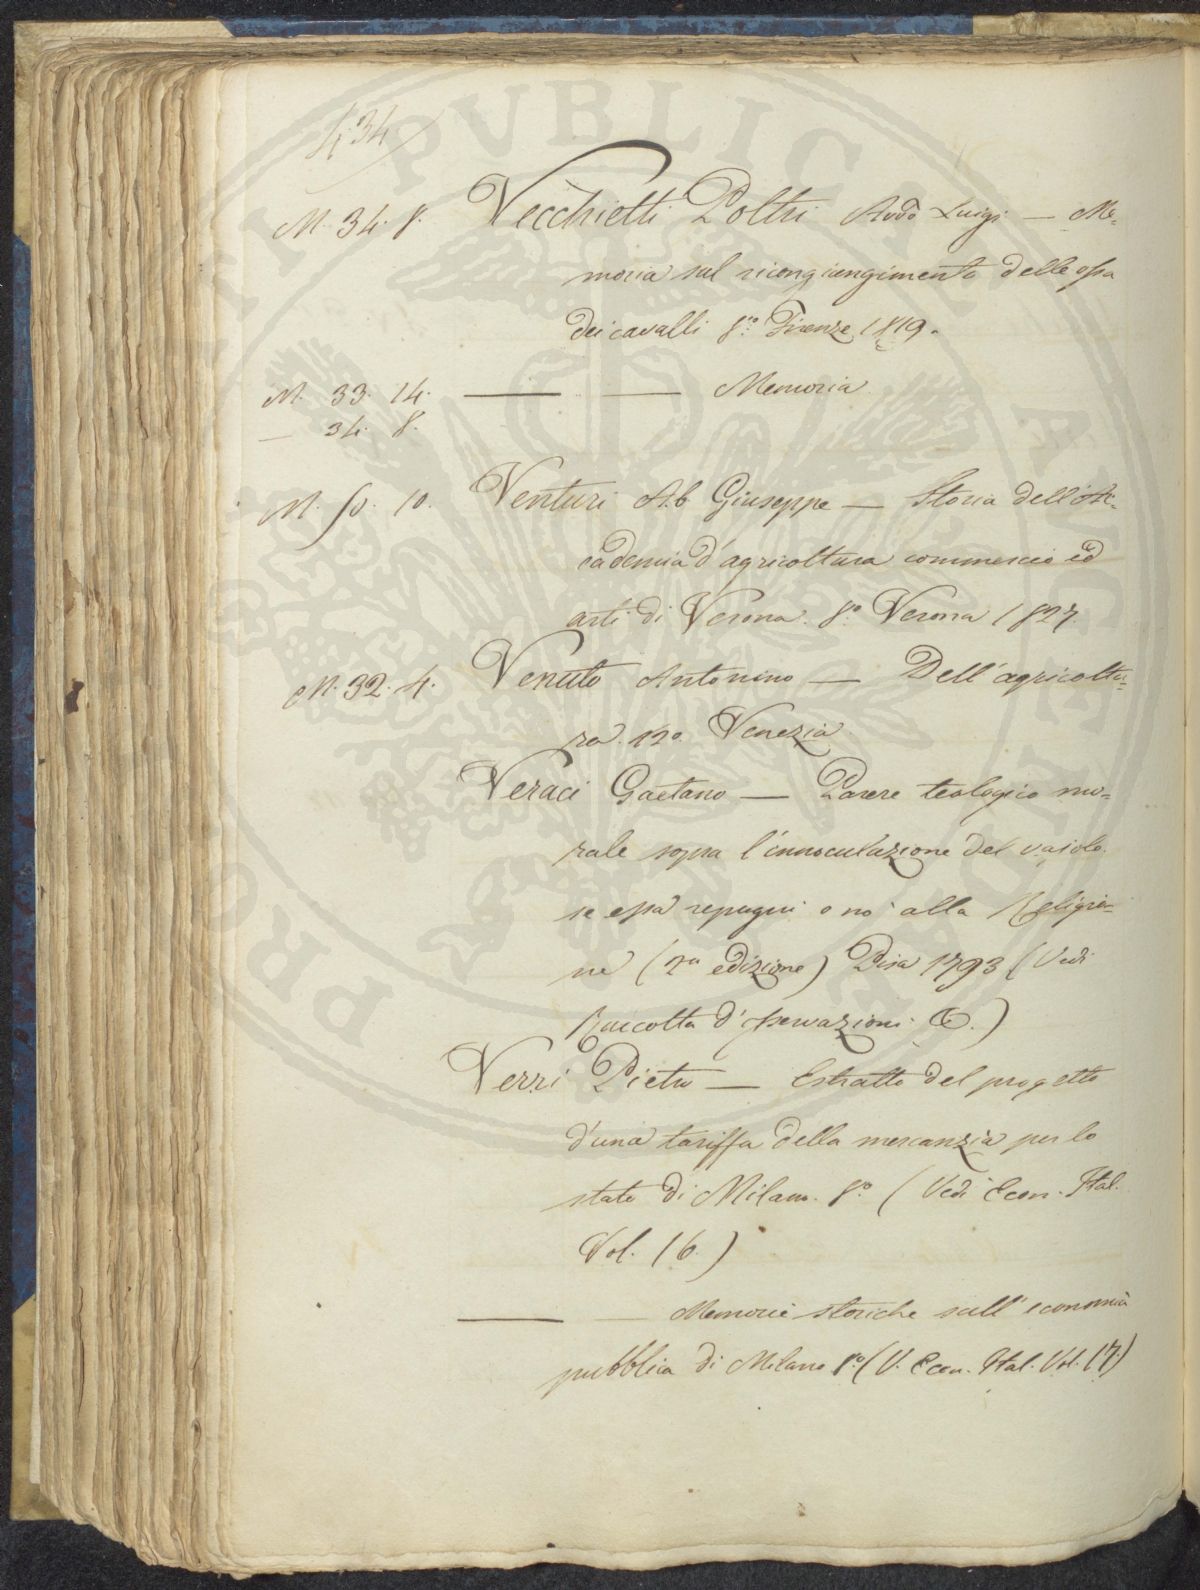 434
M. 34. 8. Vecchietti Poltri Avvo Luigi — Me=
moria sul ricongiungimento delle ossa
dei cavalli 8vo Firenze 1819.
M. 33. 14. — — Memoria
— 34. 8.
M. 50. 10. Venturi Ab Giuseppe — Storia dell'Ac=
cademia d'agricoltura commercio ed
arti di Verona. 8o Verona 1827
M. 32. 4. Venuto Antonino — Dell'agricoltu=
ra. 12o Venezia
Veraci Gaetano — Parere teologico mo=
rale sopra l'innoculazione del vajolo
se essa repugni o no alla Religio=
ne (2a edizione) Pisa 1793 (Vedi
Raccolta d'osservazioni &.)
Verri Pietro — Estratto del progetto
d'una tariffa della mercanzia per lo
stato di Milano. 8o (Vedi Econ. Ital.
Vol. 16.)
— — Memorie storiche sull'economia
pubblica di Milano 8o (V. Econ. Ital. Vol. 17.)
PROSPERITATI PVBLICAE AVGENDAE